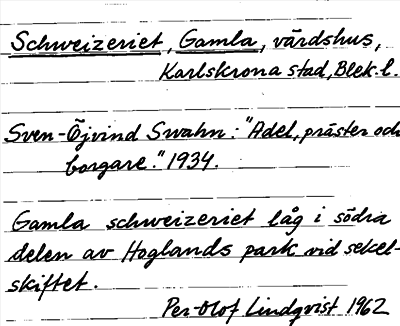 Schweizeriet, Gamla, värdshus,
Karlskrona stad, Blek. l.
Sven-Öjvind Swahn: "Adel, präster och
borgare." 1934.
Gamla schweizeriet låg i södra
delen av Hoglands park vid sekel-
skiftet.
Per-Olof Lindqvist 1962